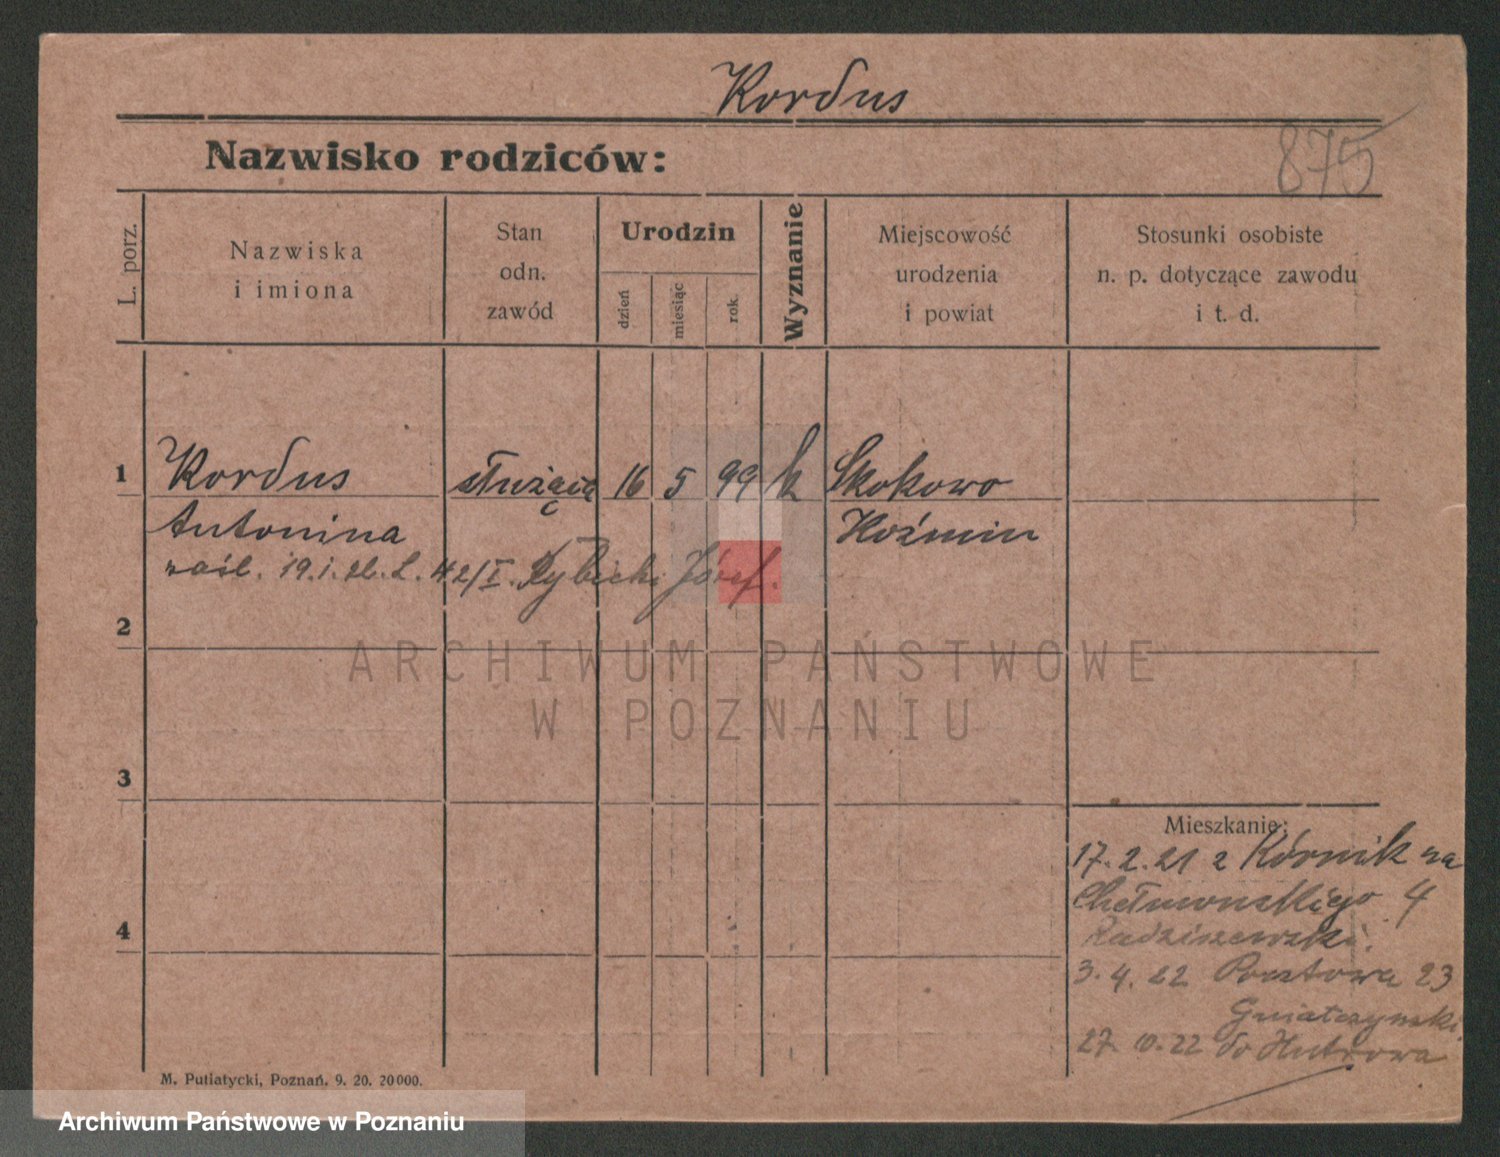 Kordus
Nazwisko rodziców:
875
L. porz.
Nazwiska
i imiona
Stan
odn.
zawód
Urodzin
dzień
miesiąc
rok.
Wyznanie
Miejscowość
urodzenia
i powiat
Stosunki osobiste
n. p. dotyczące zawodu
i t. d.
1 Kordus służąca 16 5 99 k Skokowo
Antonina Koźmin
zaśl. 19.1. 42/I. Rybicki Józef.
2
ARCHIWUM PAŃSTWOWE
W POZNANIU
3
Mieszkanie:
17.2.21 z Kórnik na
Chełmońskiego 4
Radziszewski.
4
3.4.22 Pocztowa 23
Gwiałczyński
27.10.22 do
M. Putiatycki, Poznań. 9. 20. 20000.
Archiwum Państwowe w Poznaniu